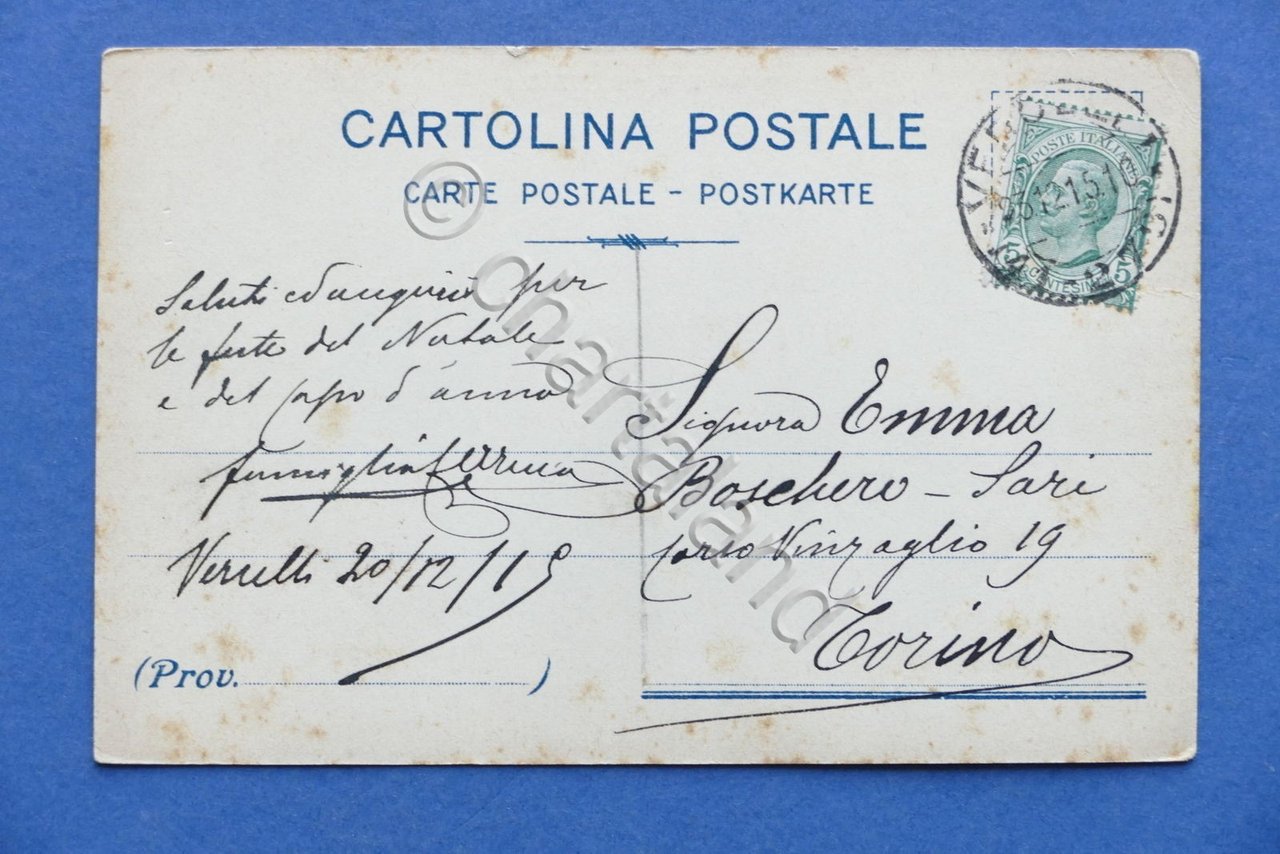 CARTOLINA POSTALE
CARTE POSTALE - POSTKARTE
POSTE ITALIANE
5 CENTESIMI 5
VERCELLI
12.15
Saluti ed auguri per
le feste del Natale
e del capo d'anno
famiglia
Vercelli 20/12/15
(Prov. )
Signora Emma
Boschero - Sari
corso Vinzaglio 19
Torino
© chartaland